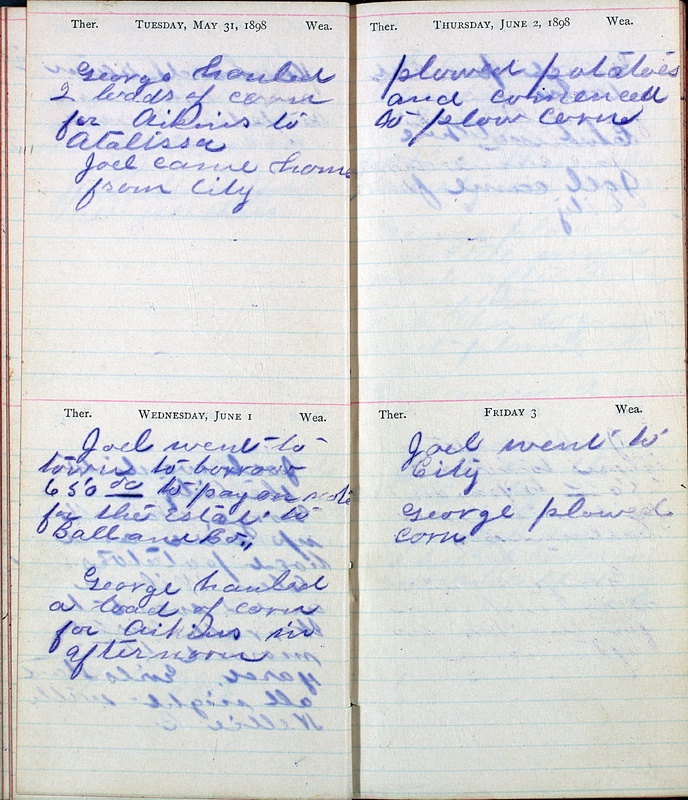 Ther. TUESDAY, MAY 31, 1898 Wea.
George hauled
2 loads of corn
for Aikins to
Atalissa
Joel came home
from City
Ther. WEDNESDAY, JUNE 1 Wea.
Joel went to
town to borrow
650 00 to pay on note
for the Estate to
Ball and Co.,,
George hauled
a load of corn
for Aikins in
afternoon
Ther. THURSDAY, JUNE 2, 1898 Wea.
plowed potatoes
and comenced
to plow corn
Ther. FRIDAY 3 Wea.
Joel went to
City
George plowed
corn